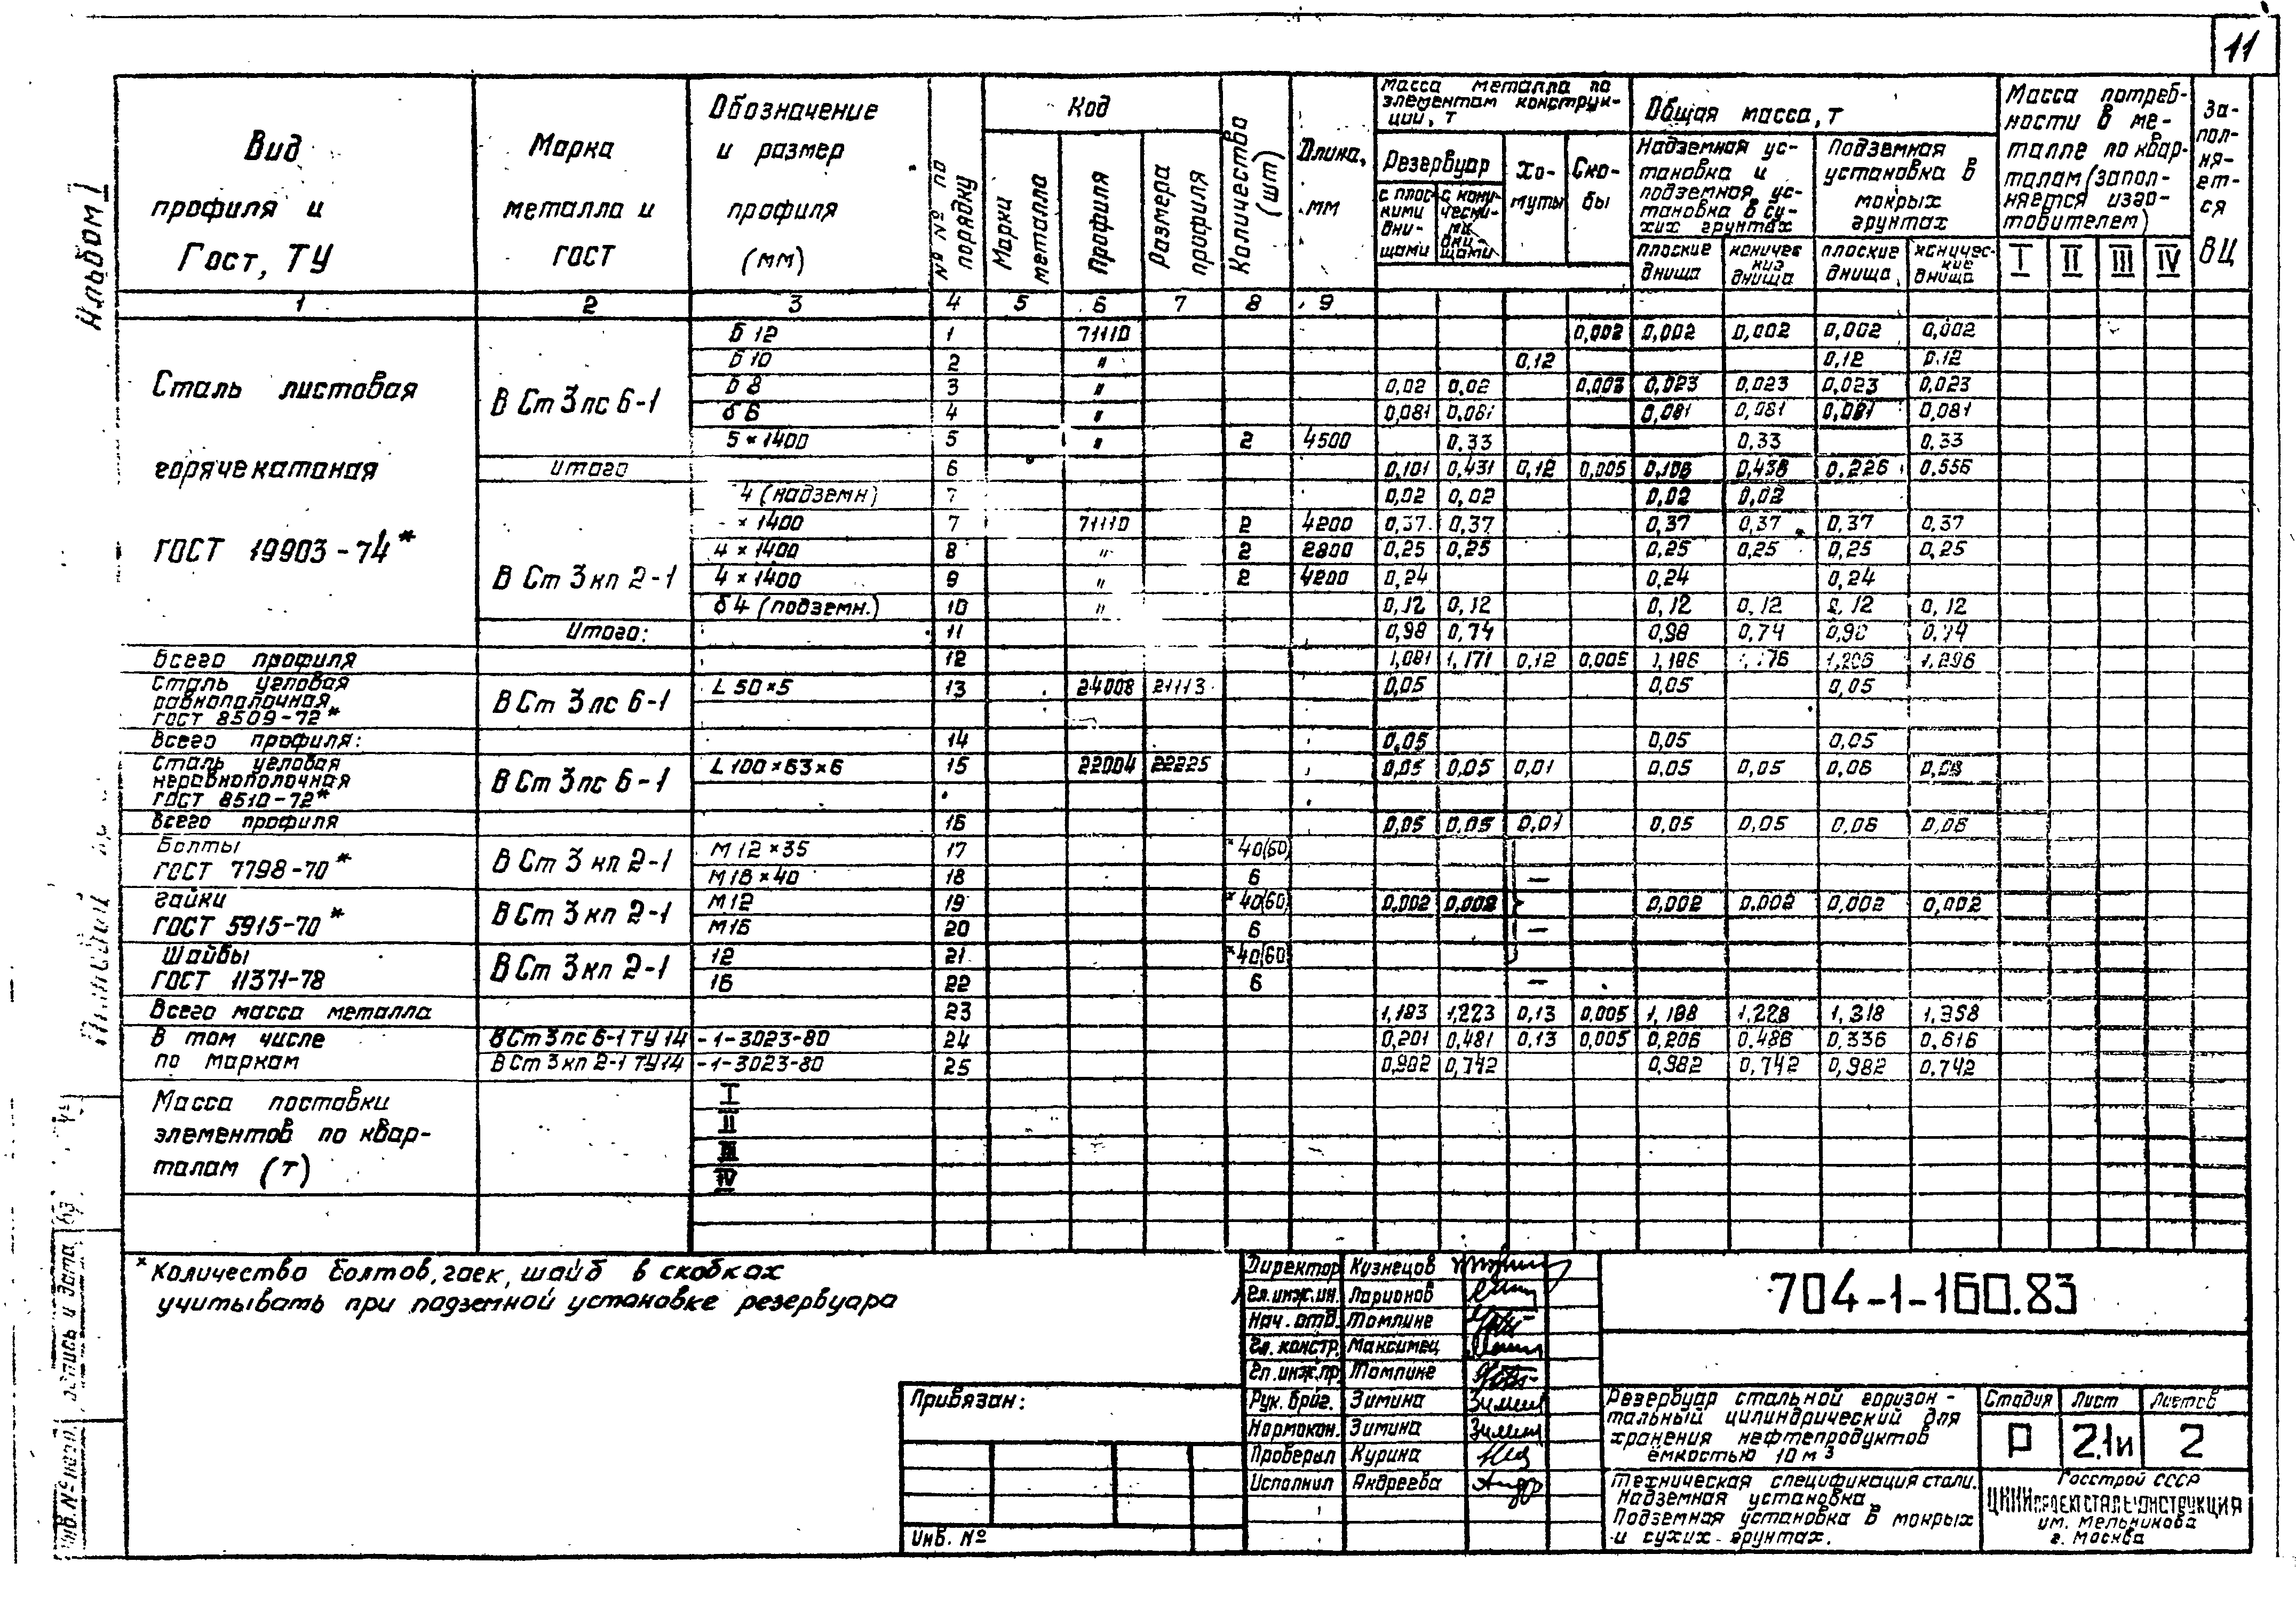 11
Альбом 1
Вид профиля и Гост, ТУ
Марка металла и ГОСТ
Обозначение и размер профиля (мм)
№ № по порядку
Код
Марки металла
Профиля
Размера профиля
Количество (шт)
Длина, мм
масса металла по элементам конструкций, т
Резервуар
с плоскими днищами
с коническими днищами
Хомуты
Скобы
Общая масса, т
Надземная установка и подземная установка в сухих грунтах
Подземная установка в мокрых грунтах
плоские днища
конические днища
плоские днища
конические днища
Масса потребности в металле по кварталам (заполняется изготовителем)
I II III IV
Заполняется ВЦ
1 2 3 4 5 6 7 8 9
Сталь листовая горячекатаная ГОСТ 19903-74*
В Ст 3 пс 6-1
δ 12 1 71110 0,002 0,002 0,002 0,002 0,002
δ 10 2 " 0,12 0,12 0,12
δ 8 3 " 0,02 0,02 0,003 0,023 0,023 0,023 0,023
δ 6 4 " 0,081 0,081 0,081 0,081 0,081 0,081
5 × 1400 5 " 2 4500 0,33 0,33 0,33
Итого 6 0,101 0,431 0,12 0,005 0,106 0,436 0,226 0,556
В Ст 3 кп 2-1
4 (надземн) 7 0,02 0,02 0,02 0,02
× 1400 7 71110 2 4200 0,37 0,37 0,37 0,37 0,37 0,37
4 × 1400 8 " 2 2800 0,25 0,25 0,25 0,25 0,25 0,25
4 × 1400 9 " 2 4200 0,24 0,24 0,24
δ 4 (подземн.) 10 " 0,12 0,12 0,12 0,12 0,12 0,12
Итого: 11 0,98 0,74 0,98 0,74 0,98 0,74
Всего профиля 12 1,081 1,171 0,12 0,005 1,296
Сталь угловая равнополочная ГОСТ 8509-72*
В Ст 3 пс 6-1 L 50×5 13 24008 21113 0,05 0,05 0,05
Всего профиля: 14 0,05 0,05 0,05
Сталь угловая неравнополочная ГОСТ 8510-72*
В Ст 3 пс 6-1 L 100×63×6 15 22004 22225 0,05 0,05 0,01 0,05 0,05 0,06 0,06
Всего профиля 16 0,05 0,05 0,01 0,05 0,05 0,06 0,06
Болты ГОСТ 7798-70*
В Ст 3 кп 2-1
М 12 × 35 17 *40(60)
М 16 × 40 18 6 —
гайки ГОСТ 5915-70*
В Ст 3 кп 2-1
М12 19 *40(60) 0,002 0,002 0,002 0,002 0,002 0,002
М16 20 6 —
Шайбы ГОСТ 11371-78
В Ст 3 кп 2-1
12 21 *40(60)
16 22 6 —
Всего масса металла 23 1,183 1,223 0,13 0,005 1,188 1,228 1,318 1,358
В том числе по маркам
В Ст 3 пс 6-1 ТУ 14-1-3023-80 24 0,201 0,481 0,13 0,005 0,206 0,486 0,336 0,616
В Ст 3 кп 2-1 ТУ 14-1-3023-80 25 0,982 0,742 0,982 0,742 0,982 0,742
Масса поставки элементов по кварталам (т)
I
II
III
IV
* Количество болтов, гаек, шайб в скобках
учитывать при подземной установке резервуара
Привязан:
Инв. №
Директор Кузнецов
Гл.инж.ин. Ларионов
Нач. отд. Томлине
Гл. констр. Максимец
Гл.инж.пр. Томлине
Рук. бриг. Зимина
Нормокон. Зимина
Проверил Курина
Исполнил Андреева
704-1-160.83
Резервуар стальной горизон-
тальный цилиндрический для
хранения нефтепродуктов
ёмкостью 10 м³
Стадия Лист Листов
Р 2.1и 2
Техническая спецификация стали.
Надземная установка.
Подземная установка в мокрых
и сухих грунтах.
Госстрой СССР
ЦНИИпроектстальконструкция
им. Мельникова
г. Москва
Инв. № подл.